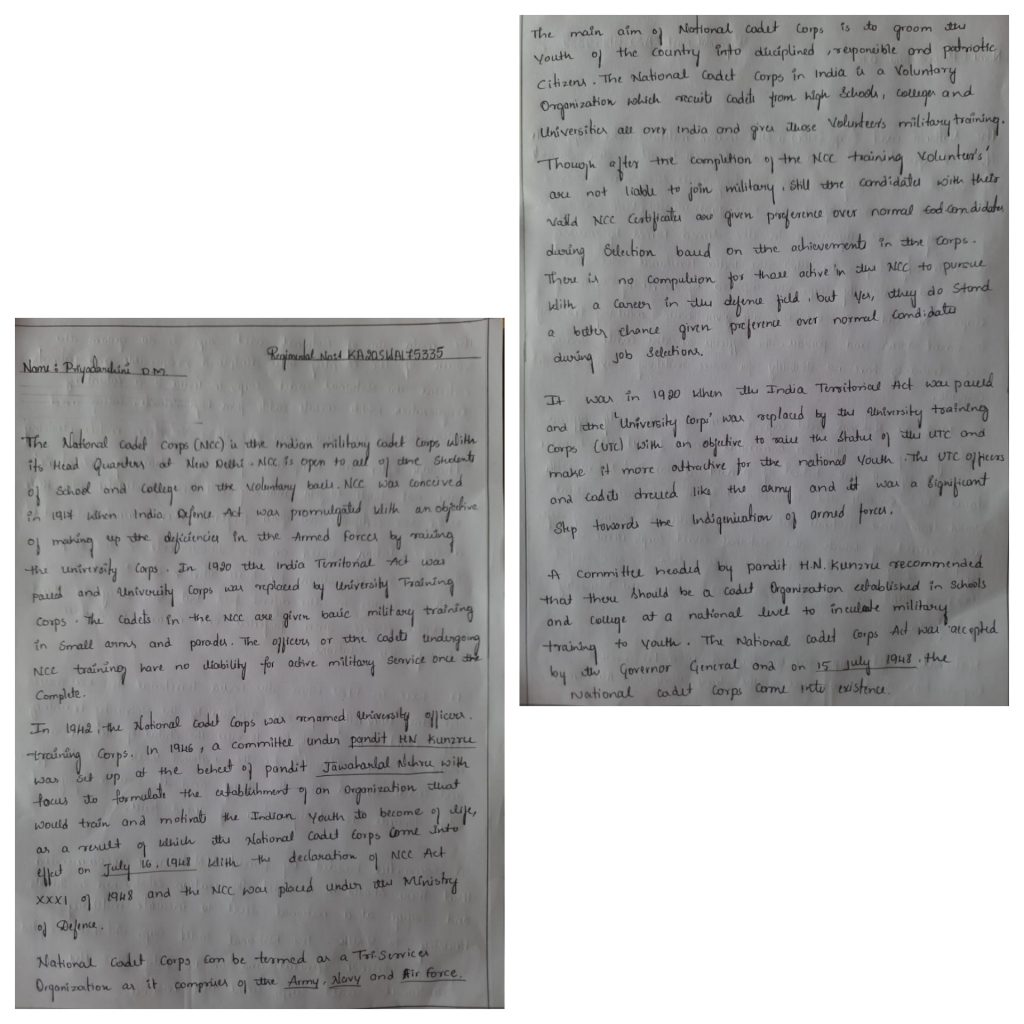 Name : Priyadarshini D.M
Regimental No:- KA20SWA175335
The National Cadet Corps (NCC) is the Indian military cadet Corps With
its Head Quarters at New Delhi. NCC is open to all of the Students
of School and College on the Voluntary basis. NCC was conceived
in 1917 when India Defence Act was promulgated With an objective
of making up the deficiencies in the Armed Forces by raising
the university Corps. In 1920 the India Territorial Act was
passed and University Corps was replaced by University Training
Corps. The Cadets in the NCC are given basic military training
in Small arms and parades. The officers or the cadets undergoing
NCC training have no liability for active military Service once the
Complete.
In 1942, the National Cadet Corps was renamed University officers.
training Corps. In 1946, a committee under pandit HN Kunzru
was Set up at the behest of pandit Jawaharlal Nehru with
focus to formulate the establishment of an Organization that
would train and motivate the Indian Youth to become of life,
as a result of Which the National Cadet Corps Come into
effect on July 16, 1948 With the declaration of NCC Act
XXXI of 1948 and the NCC was placed under the Ministry
of Defence.
National Cadet Corps Can be termed as a Tri-Services
Organization as it comprises of the Army, Navy and Air force.
The main aim of National Cadet Corps is to groom the
Youth of the Country into disciplined, responsible and patriotic
Citizens. The National Cadet Corps in India is a Voluntary
Organization which recruits Cadets from high Schools, colleges and
Universities all over India and gives those Volunteers military training.
Though after the completion of the NCC training Volunteers'
are not liable to join military, Still the candidates with theis
Valid NCC Certificates are given preference over normal candidates
during Selection based on the achievements in the Corps.
There is no compulsion for those active in the NCC to pursue
With a Career in the defence field, but Yes, they do Stand
a better chance given preference over normal Candidates
during job Selections.
It was in 1920 When the India Territorial Act was passed
and the 'University Corps' was replaced by the University training
Corps (UTC) With an objective to raise the Status of the UTC and
make it more attractive for the national Youth. The UTC officers
and cadets dressed like the army and it was a Significant
Step towards the Indigenization of armed forces.
A Committee headed by pandit H.N. Kunzru recommended
that there Should be a cadet Organization established in Schools
and College at a national level to inculcate military
training to Youth. The National Cadet Corps Act was accepted
by the Governor General and on 15 July 1948. the
National cadet corps Come into existence.